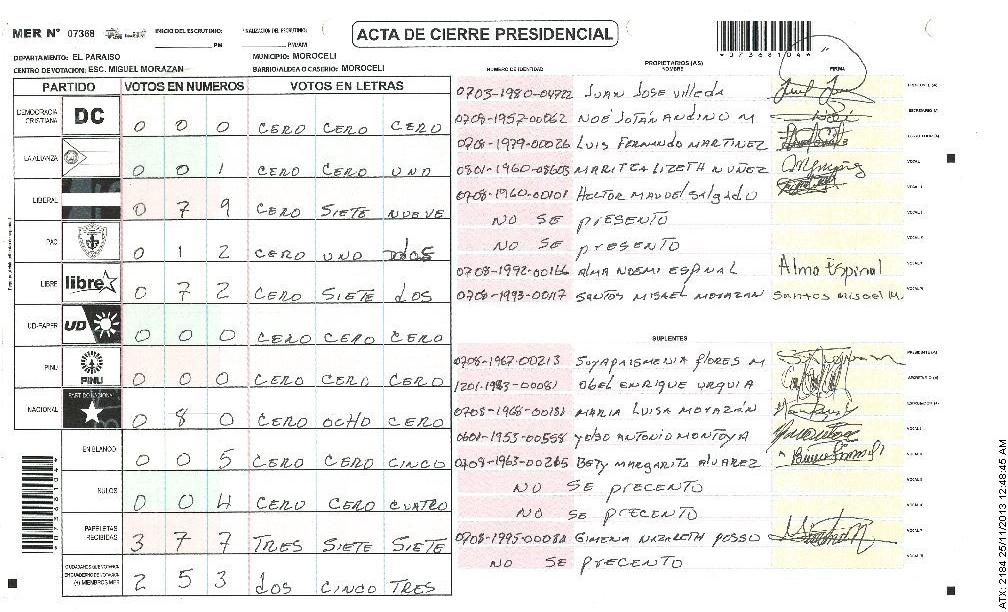 MER N° 07368 INICIO DEL ESCRUTINIO: FINALIZACION DEL ESCRUTINIO: ACTA DE CIERRE PRESIDENCIAL
PM PM/AM
DEPARTAMENTO: EL PARAISO MUNICIPIO: MOROCELI
CENTRO DE VOTACION: ESC. MIGUEL MORAZAN BARRIO/ALDEA O CASERIO: MOROCELI
PARTIDO VOTOS EN NUMEROS VOTOS EN LETRAS
DEMOCRACIA CRISTIANA DC 0 0 0 CERO CERO CERO
LA ALIANZA 0 0 1 CERO CERO UNO
LIBERAL 0 7 9 CERO SIETE NUEVE
PAC 0 1 2 CERO UNO DOS
LIBRE libre 0 7 2 CERO SIETE DOS
UD-FAPER UD 0 0 0 CERO CERO CERO
PINU PINU 0 0 0 CERO CERO CERO
NACIONAL PARTIDO NACIONAL 0 8 0 CERO OCHO CERO
EN BLANCO 0 0 5 CERO CERO CINCO
NULOS 0 0 4 CERO CERO CUATRO
PAPELETAS RECIBIDAS 3 7 7 TRES SIETE SIETE
2 5 3 DOS CINCO TRES
*07368104*
NUMERO DE IDENTIDAD PROPIETARIOS (AS) NOMBRE FIRMA
0703-1980-04722 JUAN JOSE VILLEDA
0708-1957-00062 NOÉ JOTÁN ANDINO M
0708-1979-00026 LUIS FERNANDO MARTINEZ
0801-1960-08603 MARITZA LIZETH NUÑEZ
0708-1960-00101 HECTOR MANUEL SALGADO
NO SE PRESENTO
NO SE PRESENTO
0708-1992-00166 ALMA NOEMI ESPINAL Alma Espinal
0708-1993-00117 SANTOS MISAEL MORAZAN Santos Misael M.
SUPLENTES
0708-1967-00213 FLORES M
1201-1983-00081 OBEL ENRIQUE URQUIA
0708-1968-00181 MARIA LUISA MORAZÁN
0601-1953-00558 ANTONIO MONTOYA
0709-1963-00265 BETY MARGARITA ALVAREZ
NO SE PRECENTO
NO SE PRECENTO
0708-1995-00082 GIMENA NAZARETH POSSO
NO SE PRECENTO
ATX: 2184 25/11/2013 12:48:45 AM